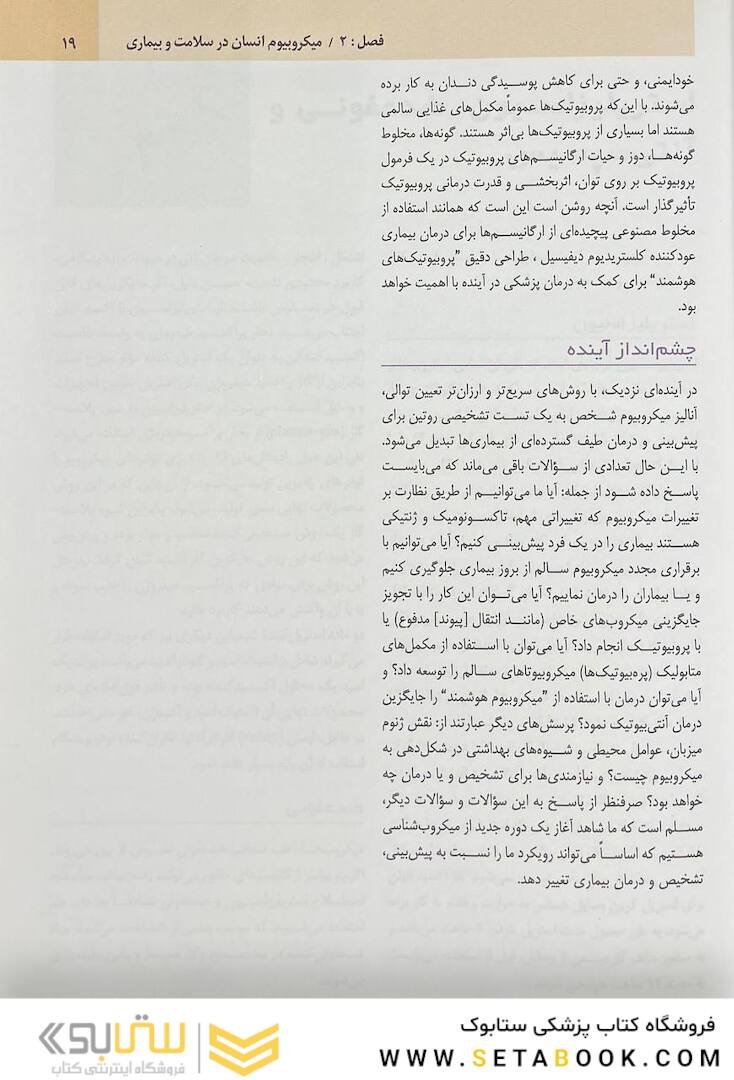 فصل: ۲ / میکروبیوم انسان در سلامت و بیماری ۱۹
خودایمنی، و حتی برای کاهش پوسیدگی دندان به کار برده
می‌شوند. با این‌که پروبیوتیک‌ها عموماً مکمل‌های غذایی سالمی
هستند اما بسیاری از پروبیوتیک‌ها بی‌اثر هستند. گونه‌ها، مخلوط
گونه‌ها، دوز و حیات ارگانیسم‌های پروبیوتیک در یک فرمول
پروبیوتیک بر روی توان، اثربخشی و قدرت درمانی پروبیوتیک
تأثیرگذار است. آنچه روشن است این است که همانند استفاده از
مخلوط مصنوعی پیچیده‌ای از ارگانیسم‌ها برای درمان بیماری
عودکننده کلستریدیوم دیفیسیل ، طراحی دقیق "پروبیوتیک‌های
هوشمند" برای کمک به درمان پزشکی در آینده با اهمیت خواهد
بود.
چشم‌انداز آینده
در آینده‌ای نزدیک، با روش‌های سریع‌تر و ارزان‌تر تعیین توالی،
آنالیز میکروبیوم شخص به یک تست تشخیصی روتین برای
پیش‌بینی و درمان طیف گسترده‌ای از بیماری‌ها تبدیل می‌شود.
با این حال تعدادی از سؤالات باقی می‌ماند که می‌بایست
پاسخ داده شود از جمله: آیا ما می‌توانیم از طریق نظارت بر
تغییرات میکروبیوم که تغییراتی مهم، تاکسونومیک و ژنتیکی
هستند بیماری را در یک فرد پیش‌بینی کنیم؟ آیا می‌توانیم با
برقراری مجدد میکروبیوم سالم از بروز بیماری جلوگیری کنیم
و یا بیماران را درمان نماییم؟ آیا می‌توان این کار را با تجویز
جایگزینی میکروب‌های خاص (مانند انتقال [پیوند] مدفوع) یا
با پروبیوتیک انجام داد؟ آیا می‌توان با استفاده از مکمل‌های
متابولیک (پره‌بیوتیک‌ها) میکروبیوتاهای سالم را توسعه داد؟ و
آیا می‌توان درمان با استفاده از "میکروبیوم هوشمند" را جایگزین
درمان آنتی‌بیوتیک نمود؟ پرسش‌های دیگر عبارتند از: نقش ژنوم
میزبان، عوامل محیطی و شیوه‌های بهداشتی در شکل‌دهی به
میکروبیوم چیست؟ و نیازمندی‌ها برای تشخیص و یا درمان چه
خواهد بود؟ صرفنظر از پاسخ به این سؤالات و سؤالات دیگر،
مسلم است که ما شاهد آغاز یک دوره جدید از میکروب‌شناسی
هستیم که اساساً می‌تواند رویکرد ما را نسبت به پیش‌بینی،
تشخیص و درمان بیماری تغییر دهد.
فروشگاه کتاب پزشکی ستابوک
WWW.SETABOOK.COM
ستابوک
فروشگاه اینترنتی کتاب